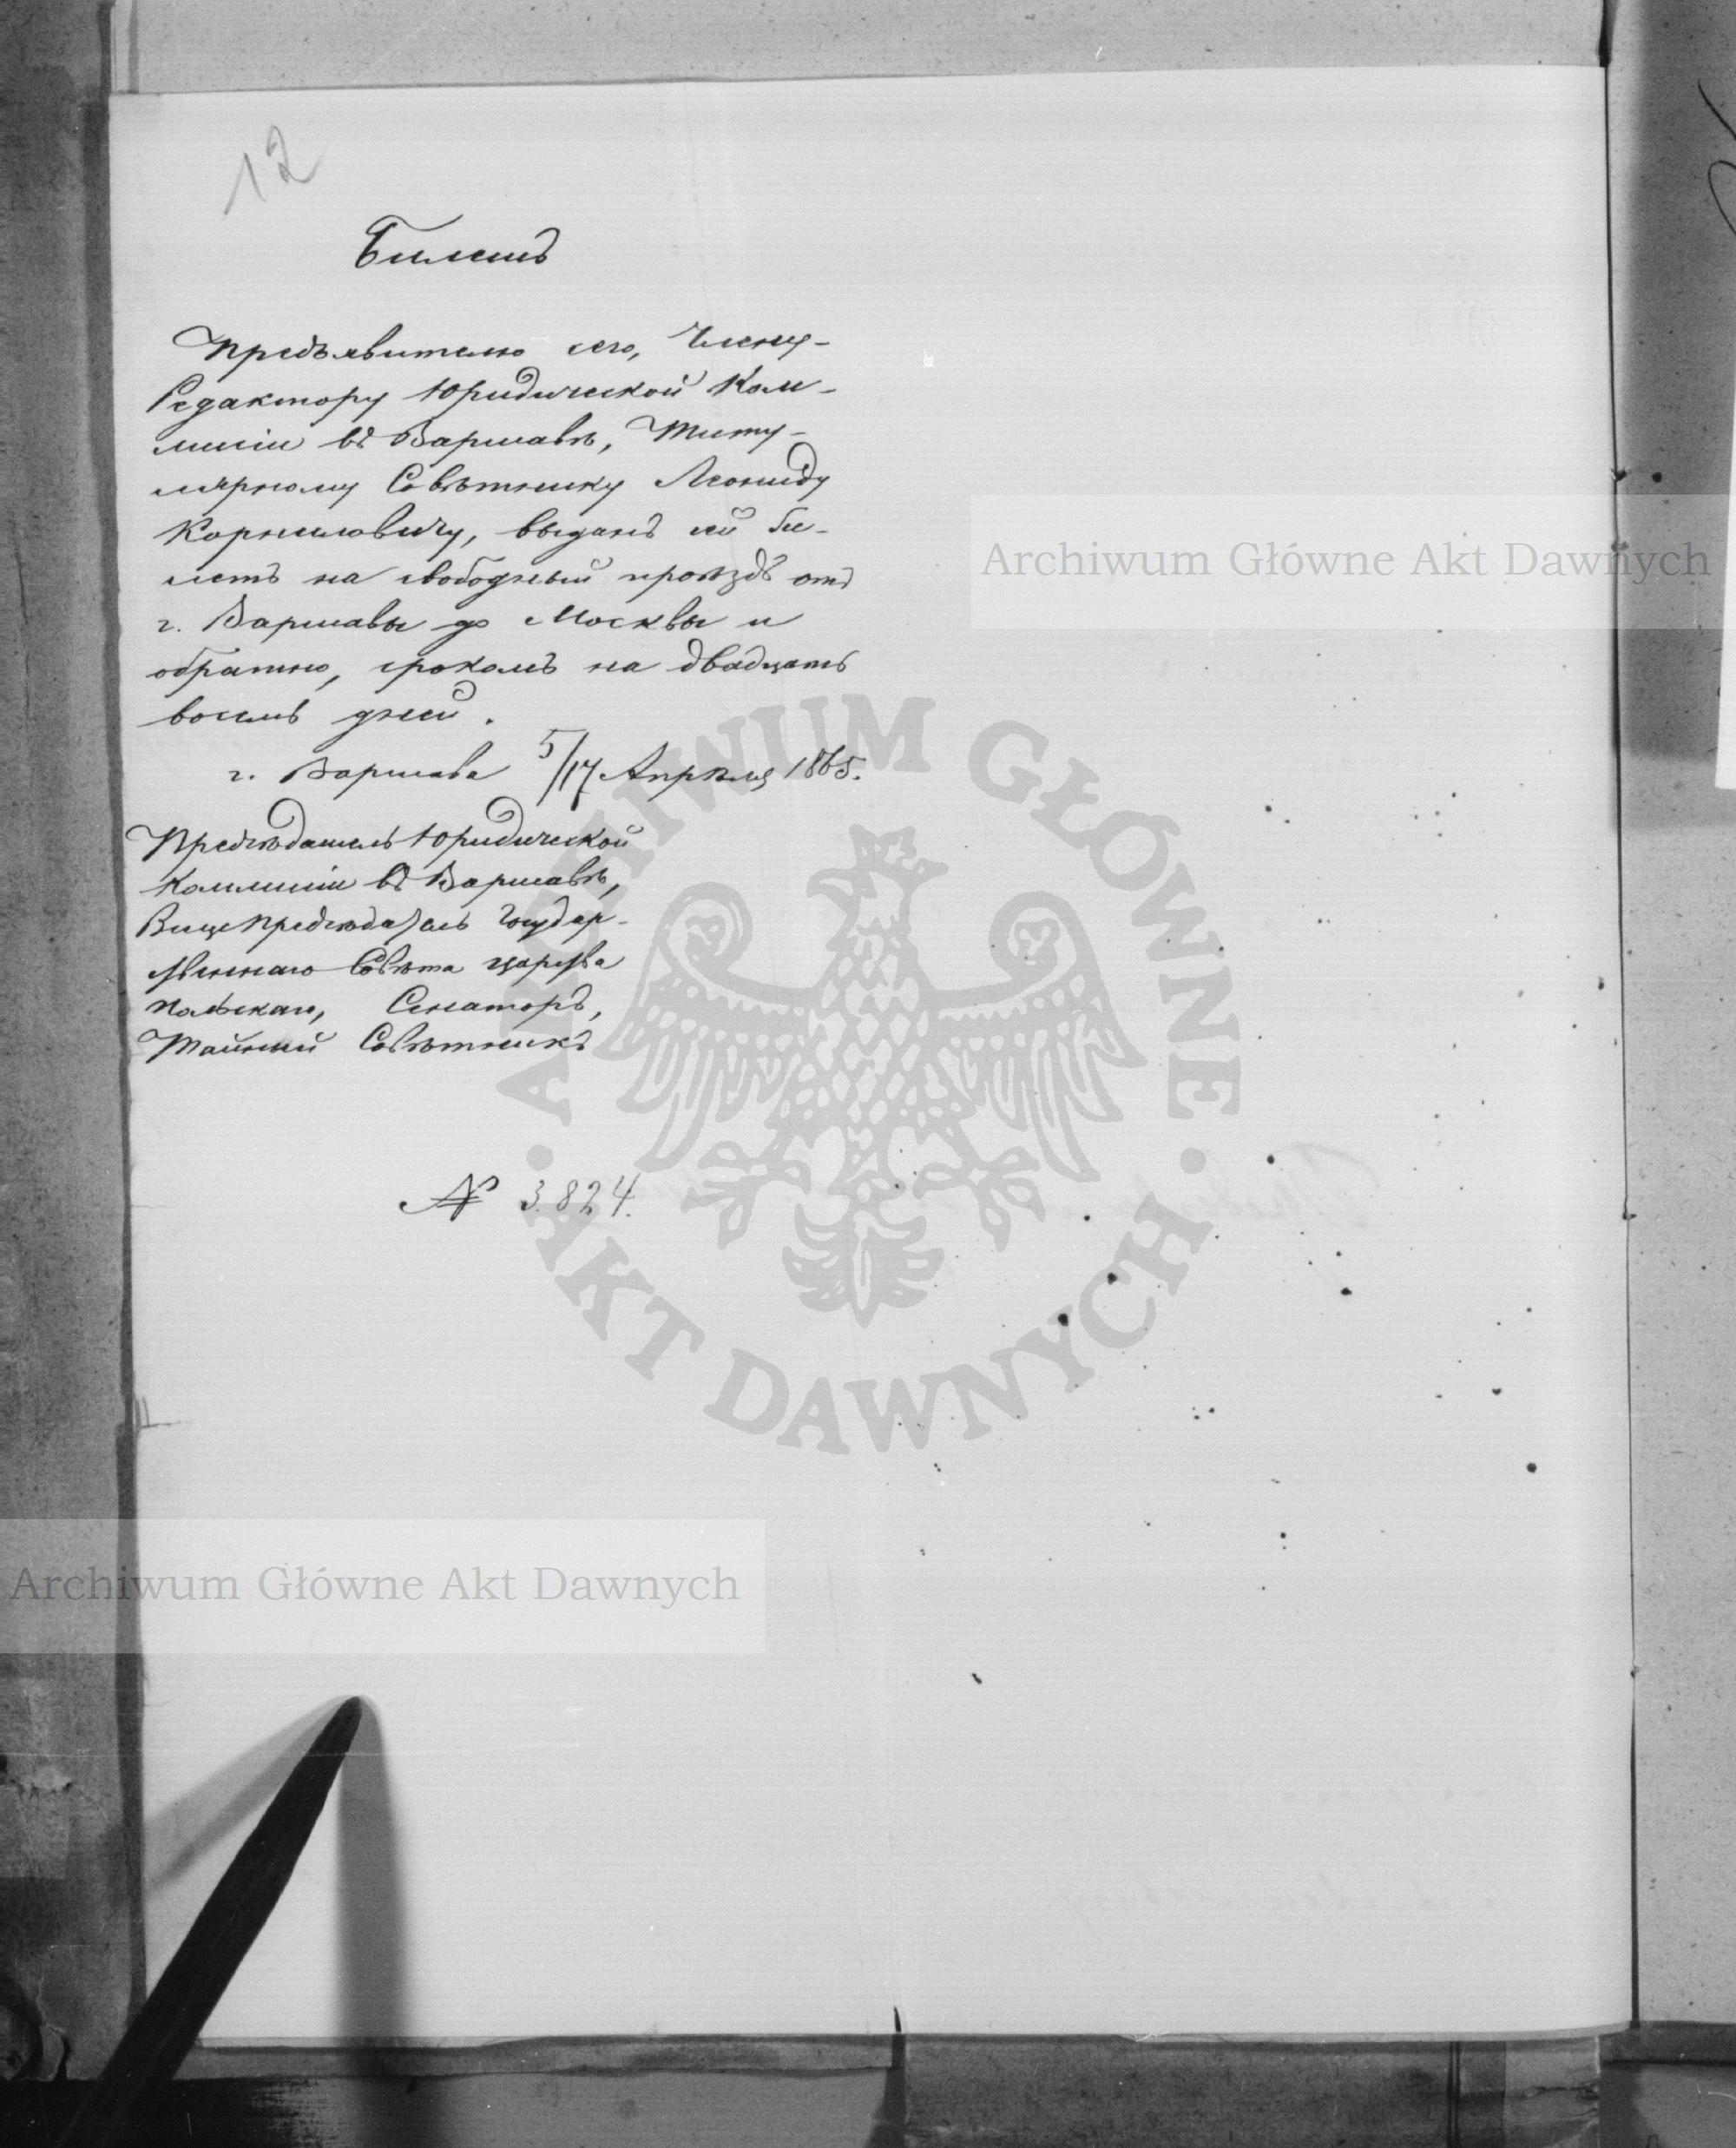 12
Билетъ
Предъявителю сего, Члену-
Редактору Юридической Ком-
мисіи въ Варшавѣ, Титу-
лярному Совѣтнику Леониду
Корниловичу, выданъ сей би-
летъ на свободный проѣздъ отъ
г. Варшавы до Москвы и
обратно, срокомъ на двадцать
восемь дней.
г. Варшава 5/17 Апрѣля 1865.
Предсѣдатель Юридической
Коммисіи въ Варшавѣ,
Вице Предсѣдатель Государ-
ственнаго Совѣта Царства
Польскаго, Сенаторъ,
Тайный Совѣтникъ
№ 3824.
Archiwum Główne Akt Dawnych
ARCHIWUM GŁÓWNE
AKT DAWNYCH
Archiwum Główne Akt Dawnych